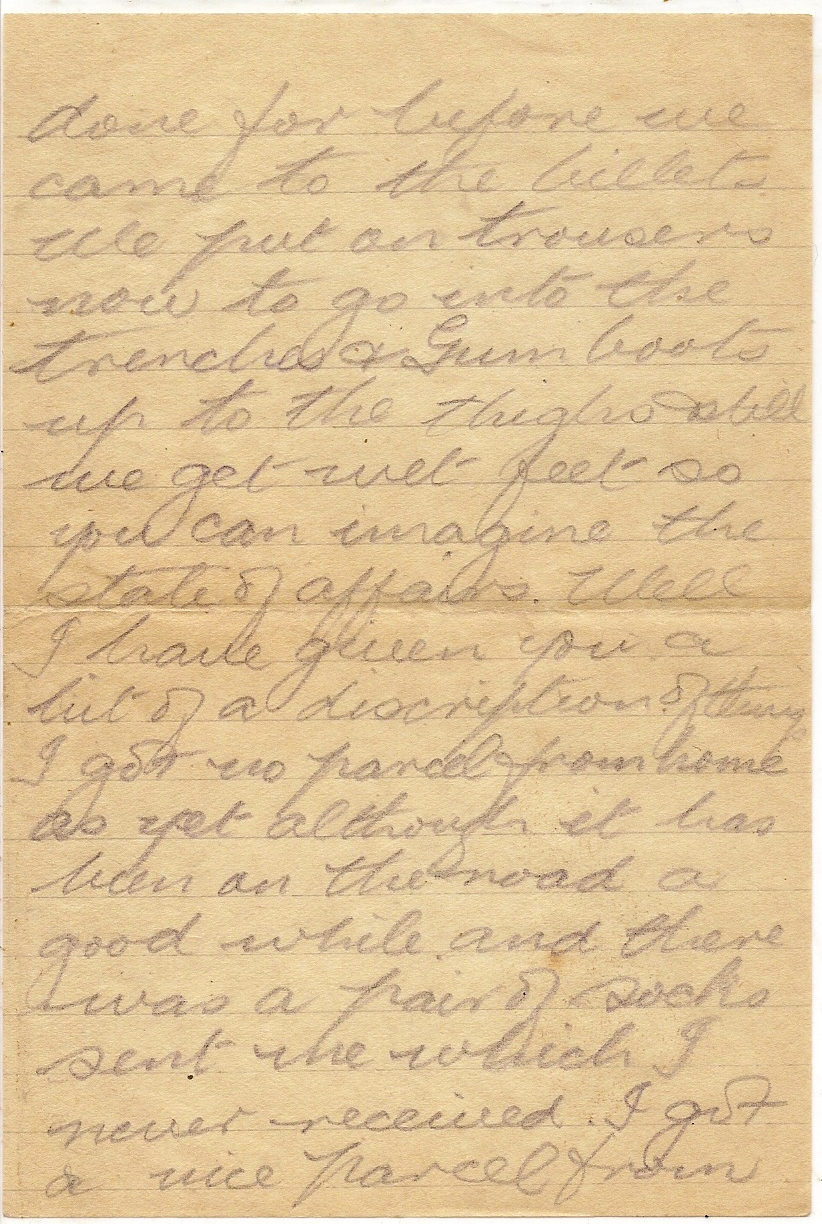 done for before we
came to the billets.
We put on trousers
now to go into the
trenches & Gum boots
up to the thighs & still
we get wet feet so
you can imagine the
state of affairs. Well
I have given you a
bit of a discription of things
I got no parcel from home
as yet although it has
been on the road a
good while and there
was a pair of socks
sent me which I
never received. I got
a nice parcel from